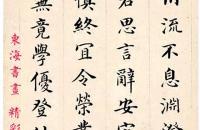 川流不息淵澄
若思言辭安定
慎終宜令榮業
無竟學優登仕
東海書畫 精彩